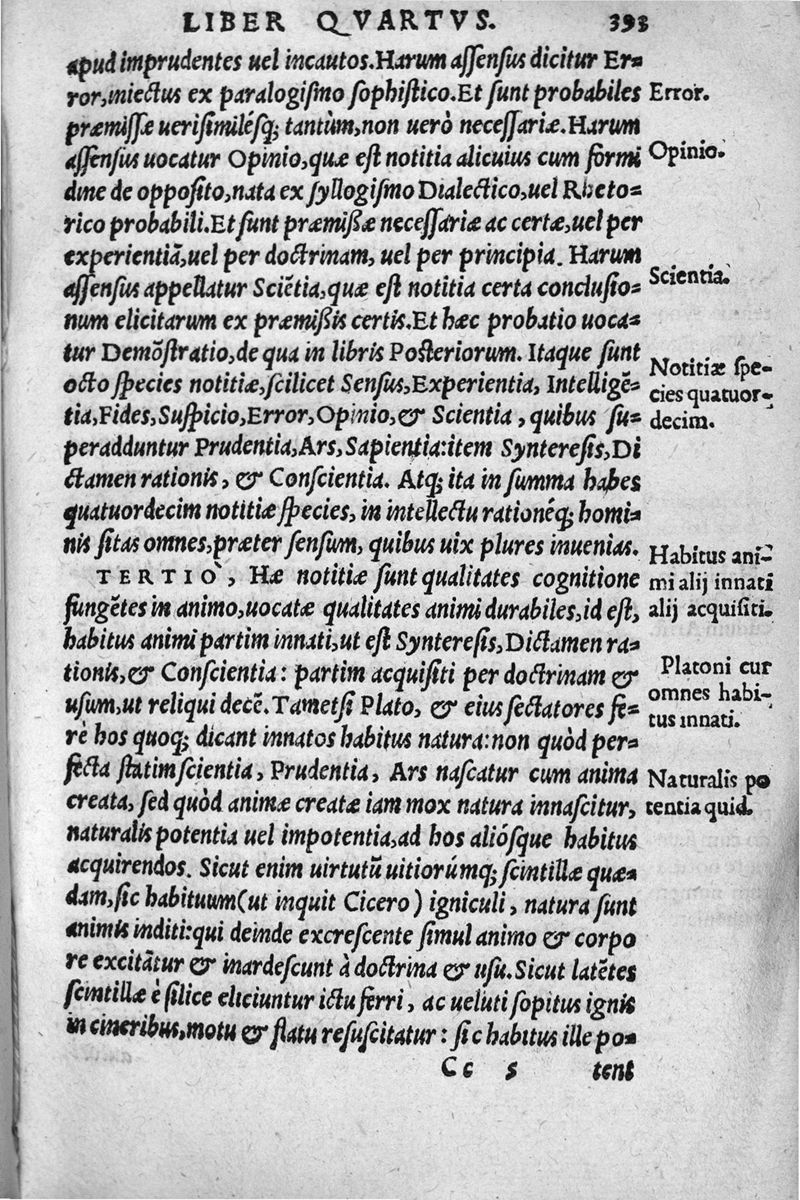 LIBER QVARTVS. 393
apud imprudentes uel incautos.Harum aſſenſus dicitur Er=
ror,iniectus ex paralogiſmo ſophiſtico.Et ſunt probabiles
præmiſſæ ueriſimiléſq; tantùm,non uerò neceſſariæ.Harum
aſſenſus uocatur Opinio,quæ eſt notitia alicuius cum formi
dine de oppoſito,nata ex ſyllogiſmo Dialectico,uel Rheto=
rico probabili.Et ſunt præmißæ neceſſariæ ac certæ,uel per
experientiã,uel per doctrinam, uel per principia. Harum
aſſenſus appellatur Sciẽtia,quæ eſt notitia certa concluſio=
num elicitarum ex præmißis certis.Et hæc probatio uoca=
tur Demõſtratio,de qua in libris Poſteriorum. Itaque ſunt
octo ſpecies notitiæ,ſcilicet Senſus,Experientia, Intelligẽ=
tia,Fides,Suſpicio,Error,Opinio,& Scientia, quibus ſu=
peradduntur Prudentia,Ars,Sapientia:item Syntereſis,Di
ctamen rationis, & Conſcientia. Atq; ita in ſumma habes
quatuordecim notitiæ ſpecies, in intellectu rationéq; homi=
nis ſitas omnes,præter ſenſum, quibus uix plures inuenias.
TERTIÒ, Hæ notitiæ ſunt qualitates cognitione
fungẽtes in animo,uocatæ qualitates animi durabiles,id eſt,
habitus animi partim innati,ut eſt Syntereſis,Dictamen ra=
tionis,& Conſcientia: partim acquiſiti per doctrinam &
uſum,ut reliqui decẽ.Tametſi Plato, & eius ſectatores fe=
rè hos quoq; dicant innatos habitus natura:non quòd per=
fecta ſtatim ſcientia, Prudentia, Ars naſcatur cum anima
creata, ſed quòd animæ creatæ iam mox natura innaſcitur,
naturalis potentia uel impotentia,ad hos alióſque habitus
acquirendos. Sicut enim uirtutũ uitiorúmq; ſcintillæ quæ=
dam,ſic habituum(ut inquit Cicero) igniculi, natura ſunt
animis inditi:qui deinde excreſcente ſimul animo & corpo
re excitãtur & inardeſcunt à doctrina & uſu. Sicut latẽtes
ſcintillæ è ſilice eliciuntur ictu ferri, ac ueluti ſopitus ignis
in cineribus,motu & flatu reſuſcitatur: ſic habitus ille po=
Cc 5 tent
Error.
Opinio.
Scientia.
Notitiæ ſpe-
cies quatuor-
decim.
Habitus ani-
mi alij innati
alij acquiſiti.
Platoni cur
omnes habi-
tus innati.
Naturalis po
tentia quid.